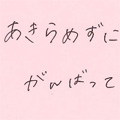 あきらめずに
がんばって